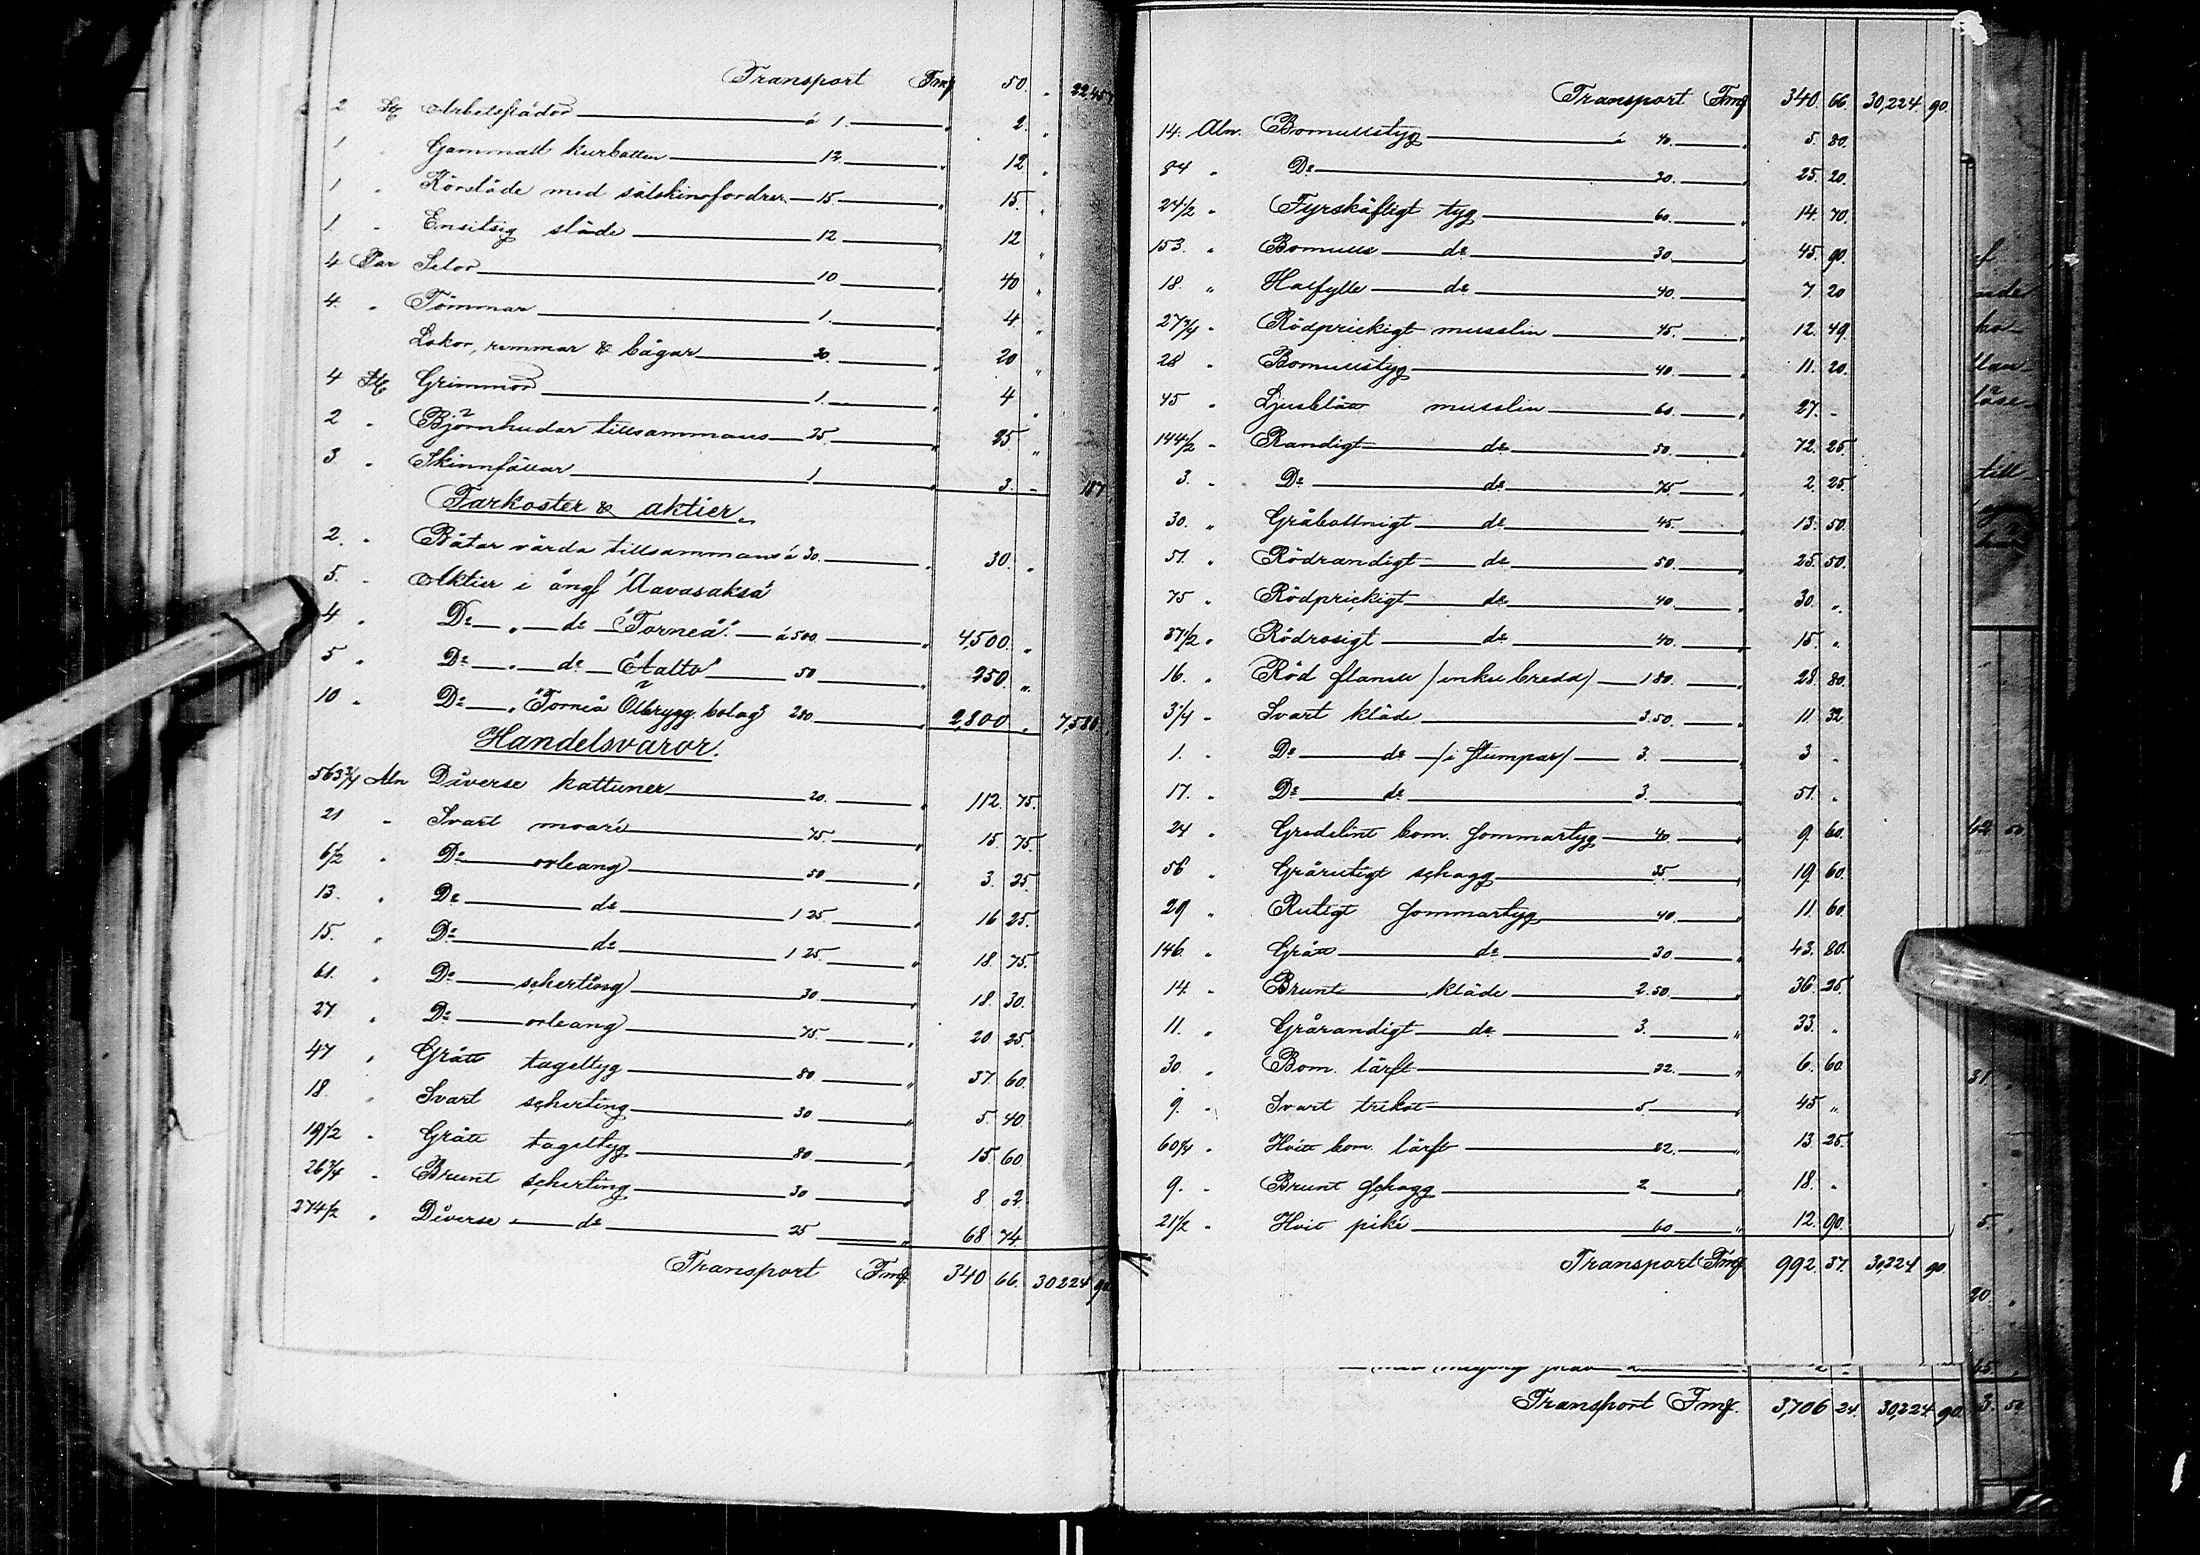 Transport Fmk 50. „ 22,457
2 St. Arbetsslädor à 1. „ 2. „
1 „ Gammall kurbotten 12. „ 12 „
1 „ Körsläde med sälskinnsfordrer 15 „ 15. „
1 „ Ensitsig släde 12 „ 12 „
4 Par Selor 10 „ 40 „
4. „ Tömmar 1. „ 4 „
Lokor, remmar & bågar 20. „ 20 „
4 St. Grimmor 1. „ 4 „
2 „ Björnhudar tillsammans 25 „ 25. „
3 „ Skinnfällar 1 „ 3. - 187
Farkoster & aktier.
2. „ Båtar värda tillsammans à 30. „ 30. „
5. „ Aktier i ångf "Aavasaksa"
4 „ Do „ do "Torneå". à 500 „ 4,500. „
5 „ Do „ do "Aalto" 50 „ 250. „
10 „ Do „ "Torneå Ölbrygg. bolag" 280 „ 2,800 „ 7,580.
Handelsvaror.
563 3/4 Aln Diverse kattuner 20. „ 112. 75.
21 „ Svart moaré 75 „ 15 75.
6 1/2 „ Do orleang 50 „ 3. 25.
13. „ Do do 1 25 „ 16 25.
15. „ Do do 1 25. „ 18. 75.
61. „ Do scherting 30 „ 18 30.
27 „ Do orleang 75. „ 20 25.
47 „ Grått tageltyg 80 „ 37. 60.
18. „ Svart scherting 30 „ 5. 40.
19 1/2 „ Grått tageltyg 80. „ 15. 60.
26 3/4 „ Brunt scherting 30 „ 8 02.
274 1/2 „ Diverse do 25 „ 68 74.
Transport Fmk. 340 66. 30224 90
Transport Fmk 340. 66. 30,224 90.
14. Aln. Bomullstyg à 40. „ 5. 80.
84 „ Do 30. „ 25. 20.
24 1/2 „ Fyrskäftigt tyg 60. „ 14. 70.
153. „ Bomulls do 30 „ 45. 90.
18. „ Halfylle do 40. „ 7. 20
27 3/4 „ Rödprickigt musslin 45. „ 12. 49.
28 „ Bomullstyg 40. „ 11. 20.
45 „ Ljusblått musslin 60. „ 27. -
144 1/2 „ Randigt do 50. „ 72. 25
3. „ Do do 75. „ 2. 25.
30. „ Gråbottnigt do 45. „ 13. 50.
51. „ Rödrandigt do 50. „ 25. 50.
75 „ Rödprickigt do 40. „ 30. „
37 1/2 „ Rödrosigt do 40. „ 15. „
16. „ Röd flanell /enkel bredd/ 1 80. „ 28. 80.
3 1/4 „ Svart kläde 3.50. „ 11. 32
1. „ Do do /i stumpar/ 3. „ 3 „
17. „ Do do 3. „ 51. „
24 „ Gredelint bom. sommartyg 40. „ 9. 60.
56 „ Grårutigt schagg 35. „ 19. 60.
29 „ Rutigt sommartyg 40. „ 11. 60.
146. „ Grått do 30 „ 43. 80.
14. „ Brunt kläde 2.50. „ 36. 25.
11. „ Grårandigt do 3. „ 33. „
30. „ Bom. lärft 22. „ 6. 60.
9. „ Svart trikot 5. „ 45 „
60 1/4 „ Hvitt bom. lärft 22. „ 13. 25.
9. „ Brunt schagg 2 „ 18. „
21 1/2 „ Hvit piké 60 „ 12. 90.
Transport Fmk 992. 37. 30,224 90.
Transport Fmk. 3,706 24. 30,224 90